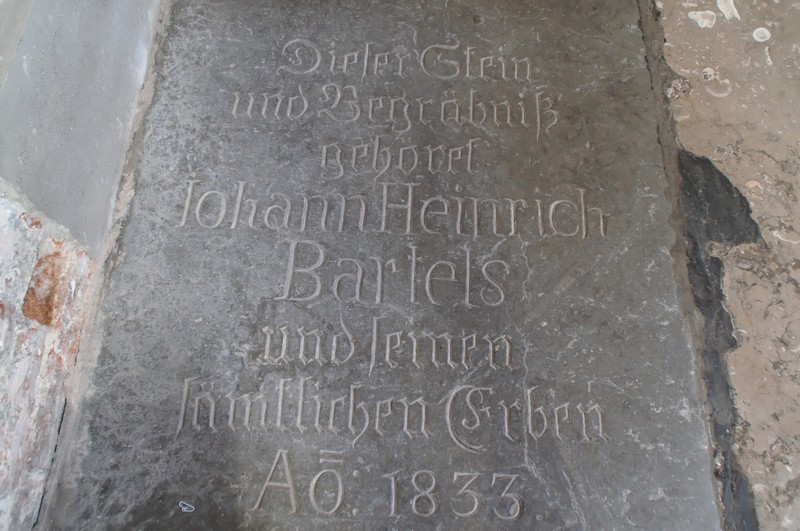 Dieſer Stein
und Begräbniß
gehöret
Johann Heinrich
Bartels
und ſeinen
ſämtlichen Erben
Aō: 1833.